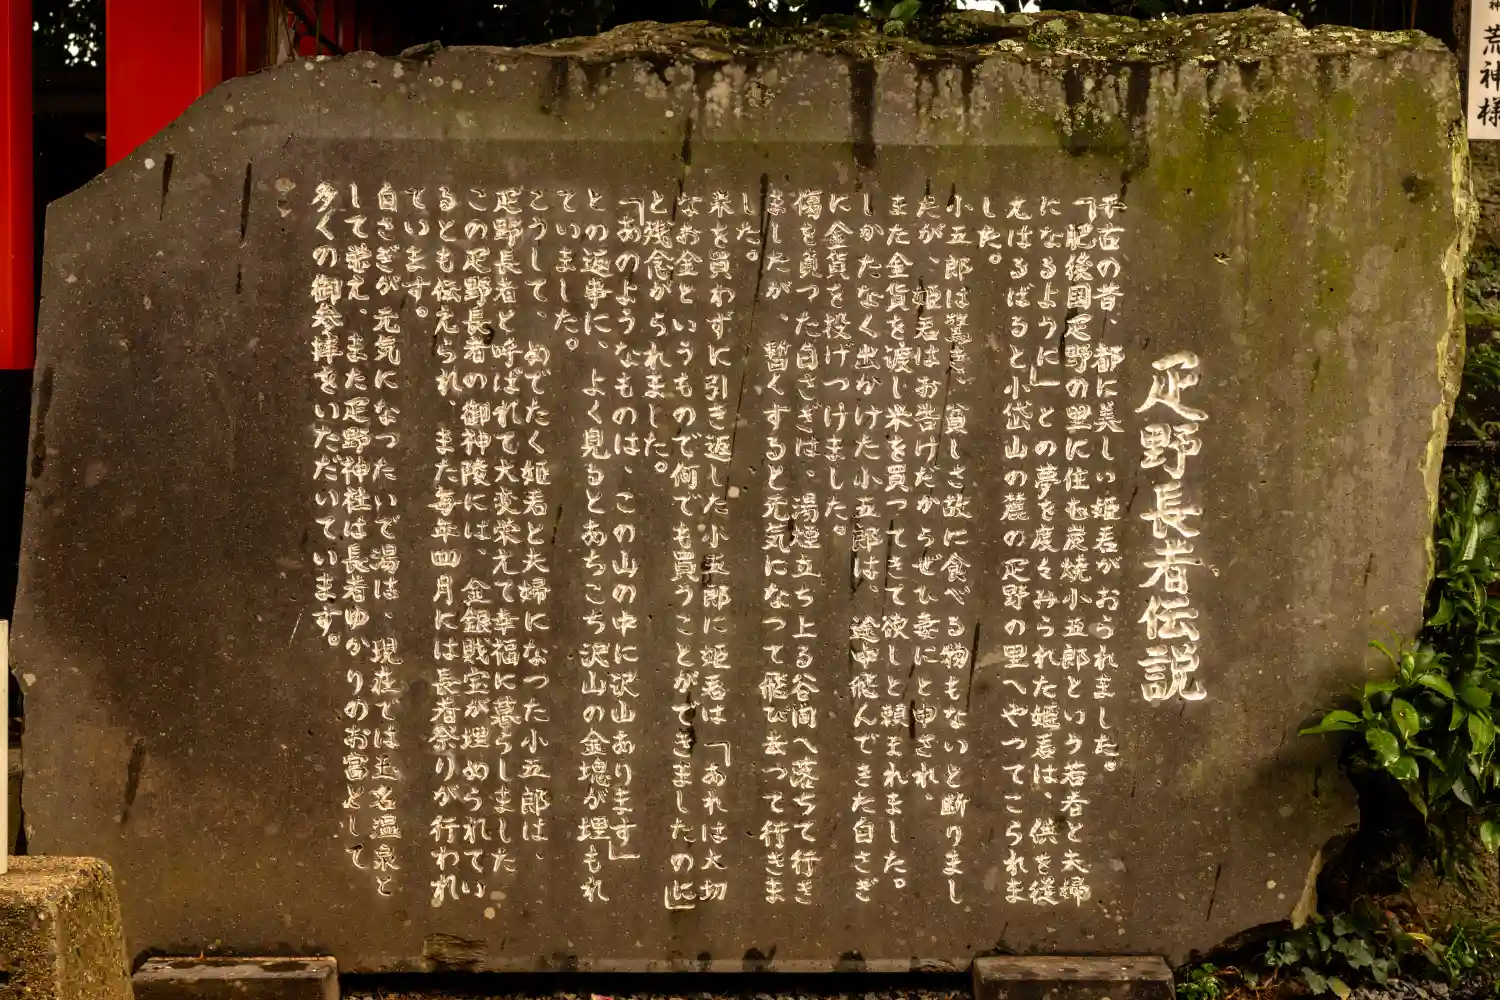 疋野長者伝説
千古の昔、都に美しい姫君がおられました。
「肥後国疋野の里に住む炭焼小五郎という若者と夫婦
になるように」との夢を度々みられた姫君は、供を従
えはるばると小岱山の麓の疋野の里へやってこられま
した。
小五郎は驚き、貧しさ故に食べる物もないと断りまし
たが、姫君はお告げだからぜひ妻にと申され、
また金貨を渡し米を買ってきて欲しと頼まれました。
しかたなく出かけた小五郎は、途中飛んできた白さぎ
に金貨を投げつけました。
傷を負った白さぎは、湯煙立ち上る谷間へ落ちて行き
ましたが、暫くすると元気になって飛び去って行きま
した。
米を買わずに引き返した小五郎に姫君は「あれは大切
なお金というもので何でも買うことができましたのに」
と残念がられました。
「あのようなものは、この山の中に沢山あります」
との返事に、よく見るとあちこち沢山の金塊が埋もれ
ていました。
こうして、めでたく姫君と夫婦になった小五郎は、
疋野長者と呼ばれて大変栄えて幸福に暮らしました
この疋野長者の御神陵には、金銀財宝が埋められてい
るとも伝えられ、また毎年四月には長者祭りが行われ
ています。
白さぎが元気になったいで湯は、現在では玉名温泉と
して栄え、また疋野神社は長者ゆかりのお宮として
多くの御参拝をいただいています。
荒神様